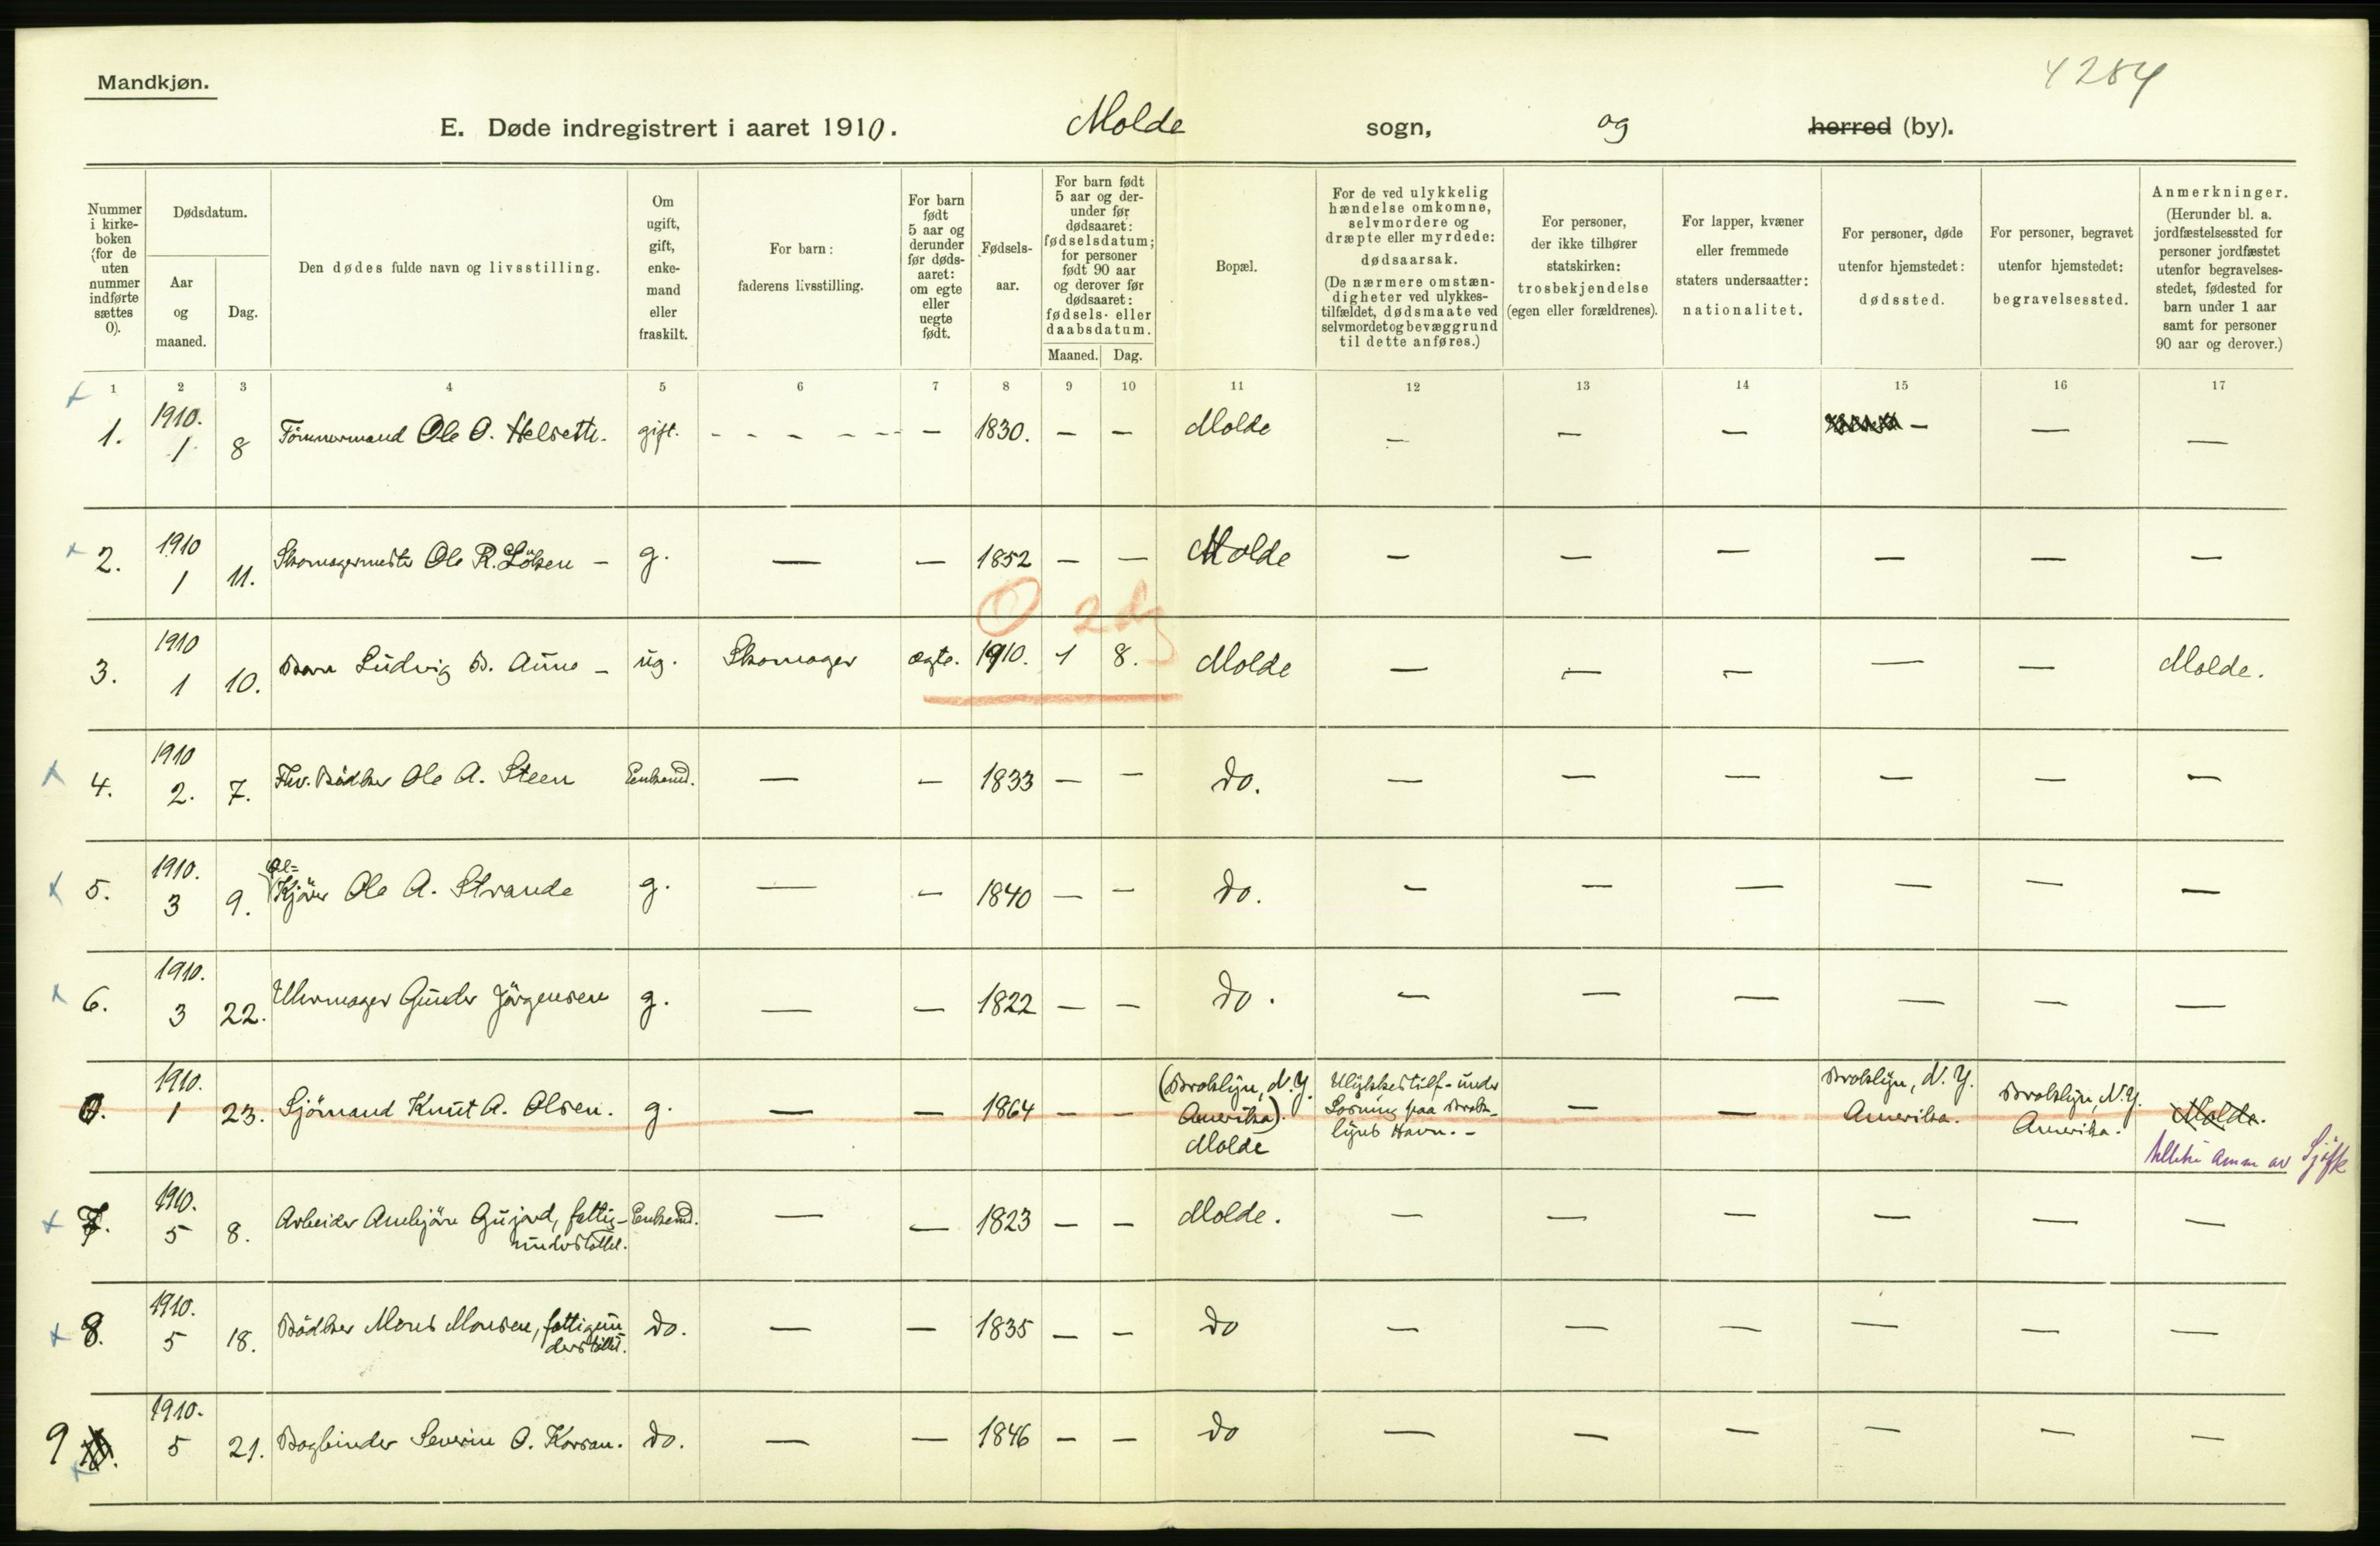 4284
Mandkjøn.
E. Døde indregistrert i aaret 1910. Molde sogn, og herred (by).
Nummer i kirke-boken (for de uten nummer indførte sættes 0).
Dødsdatum.
Aar og maaned.
Dag.
Den dødes fulde navn og livsstilling.
Om ugift, gift, enke-mand eller fraskilt.
For barn: faderens livsstilling.
For barn født 5 aar og derunder før døds-aaret: om egte eller uegte født.
Fødsels-aar.
For barn født 5 aar og der-under før dødsaaret: fødselsdatum; for personer født 90 aar og derover før dødsaaret: fødsels- eller daabsdatum.
Maaned. Dag.
Bopæl.
For de ved ulykkelig hændelse omkomne, selvmordere og dræpte eller myrdede: dødsaarsak.
(De nærmere omstæn-digheter ved ulykkes-tilfældet, dødsmaate ved selvmordet og bevæggrund til dette anføres.)
For personer, der ikke tilhører statskirken: trosbekjendelse (egen eller forældrenes).
For lapper, kvæner eller fremmede staters undersaatter: nationalitet.
For personer, døde utenfor hjemstedet: dødssted.
For personer, begravet utenfor hjemstedet: begravelsessted.
Anmerkninger.
(Herunder bl. a. jordfæstelsessted for personer jordfæstet utenfor begravelses-stedet, fødested for barn under 1 aar samt for personer 90 aar og derover.)
1 2 3 4 5 6 7 8 9 10 11 12 13 14 15 16 17
1. 1910. 1 8 Tömmermand Ole O. Helseth. gift. - - - - - - - 1830. - - Molde - - - - - -
2. 1910 1 11. Skomagermester Ole R. Lölsen - g. - - 1852 - - Molde - - - - - -
0 2 dg
3. 1910 1 10. Barn Ludvig B. Aune - ug. Skomager ægte. 1910. 1 8. Molde - - - - - Molde.
4. 1910 2. 7. Fhv. Bödker Ole A. Steen Enkemd. - - 1833 - - do. - - - - - -
5. 1910. 3 9. Öl=Kjörer Ole A. Strande g. - - 1840 - - do. - - - - - -
6. 1910. 3 22. Uhrmager Gunder Jörgensen g. - - 1822 - - do. - - - - - -
0. 1910. 1 23. Sjömand Knut A. Olsen. g. - - 1864 - - (Broklyn, N. Y. Amerika). Molde Ulykkestilf. under Losning paa Brok-lyns Havn. - - - Broklyn, N. Y. Amerika. Broklyn, N. Y. Amerika. Molde.
av Sjöfk
7. 1910. 5 8. Arbeider Gujord, fattig-understöttet. Enkemd. - - 1823 - - Molde. - - - - - -
8. 1910. 5 18. Bödker Mons Monsen, fattigun-derstöttet. do. - - 1835 - - do - - - - - -
9 1910. 5 21. Bogbinder Severin O. Korsan. do. - - 1846 - - do - - - - - -